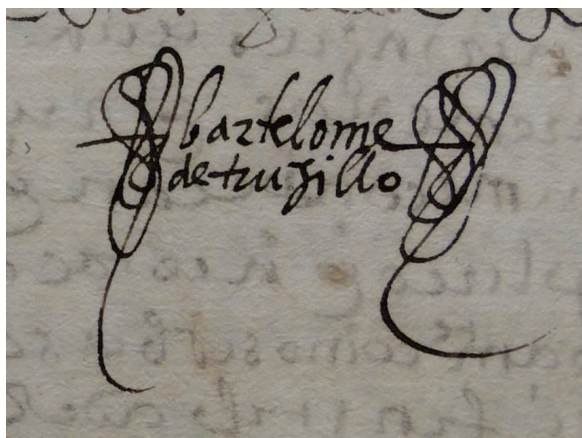 bartolome
de trujillo